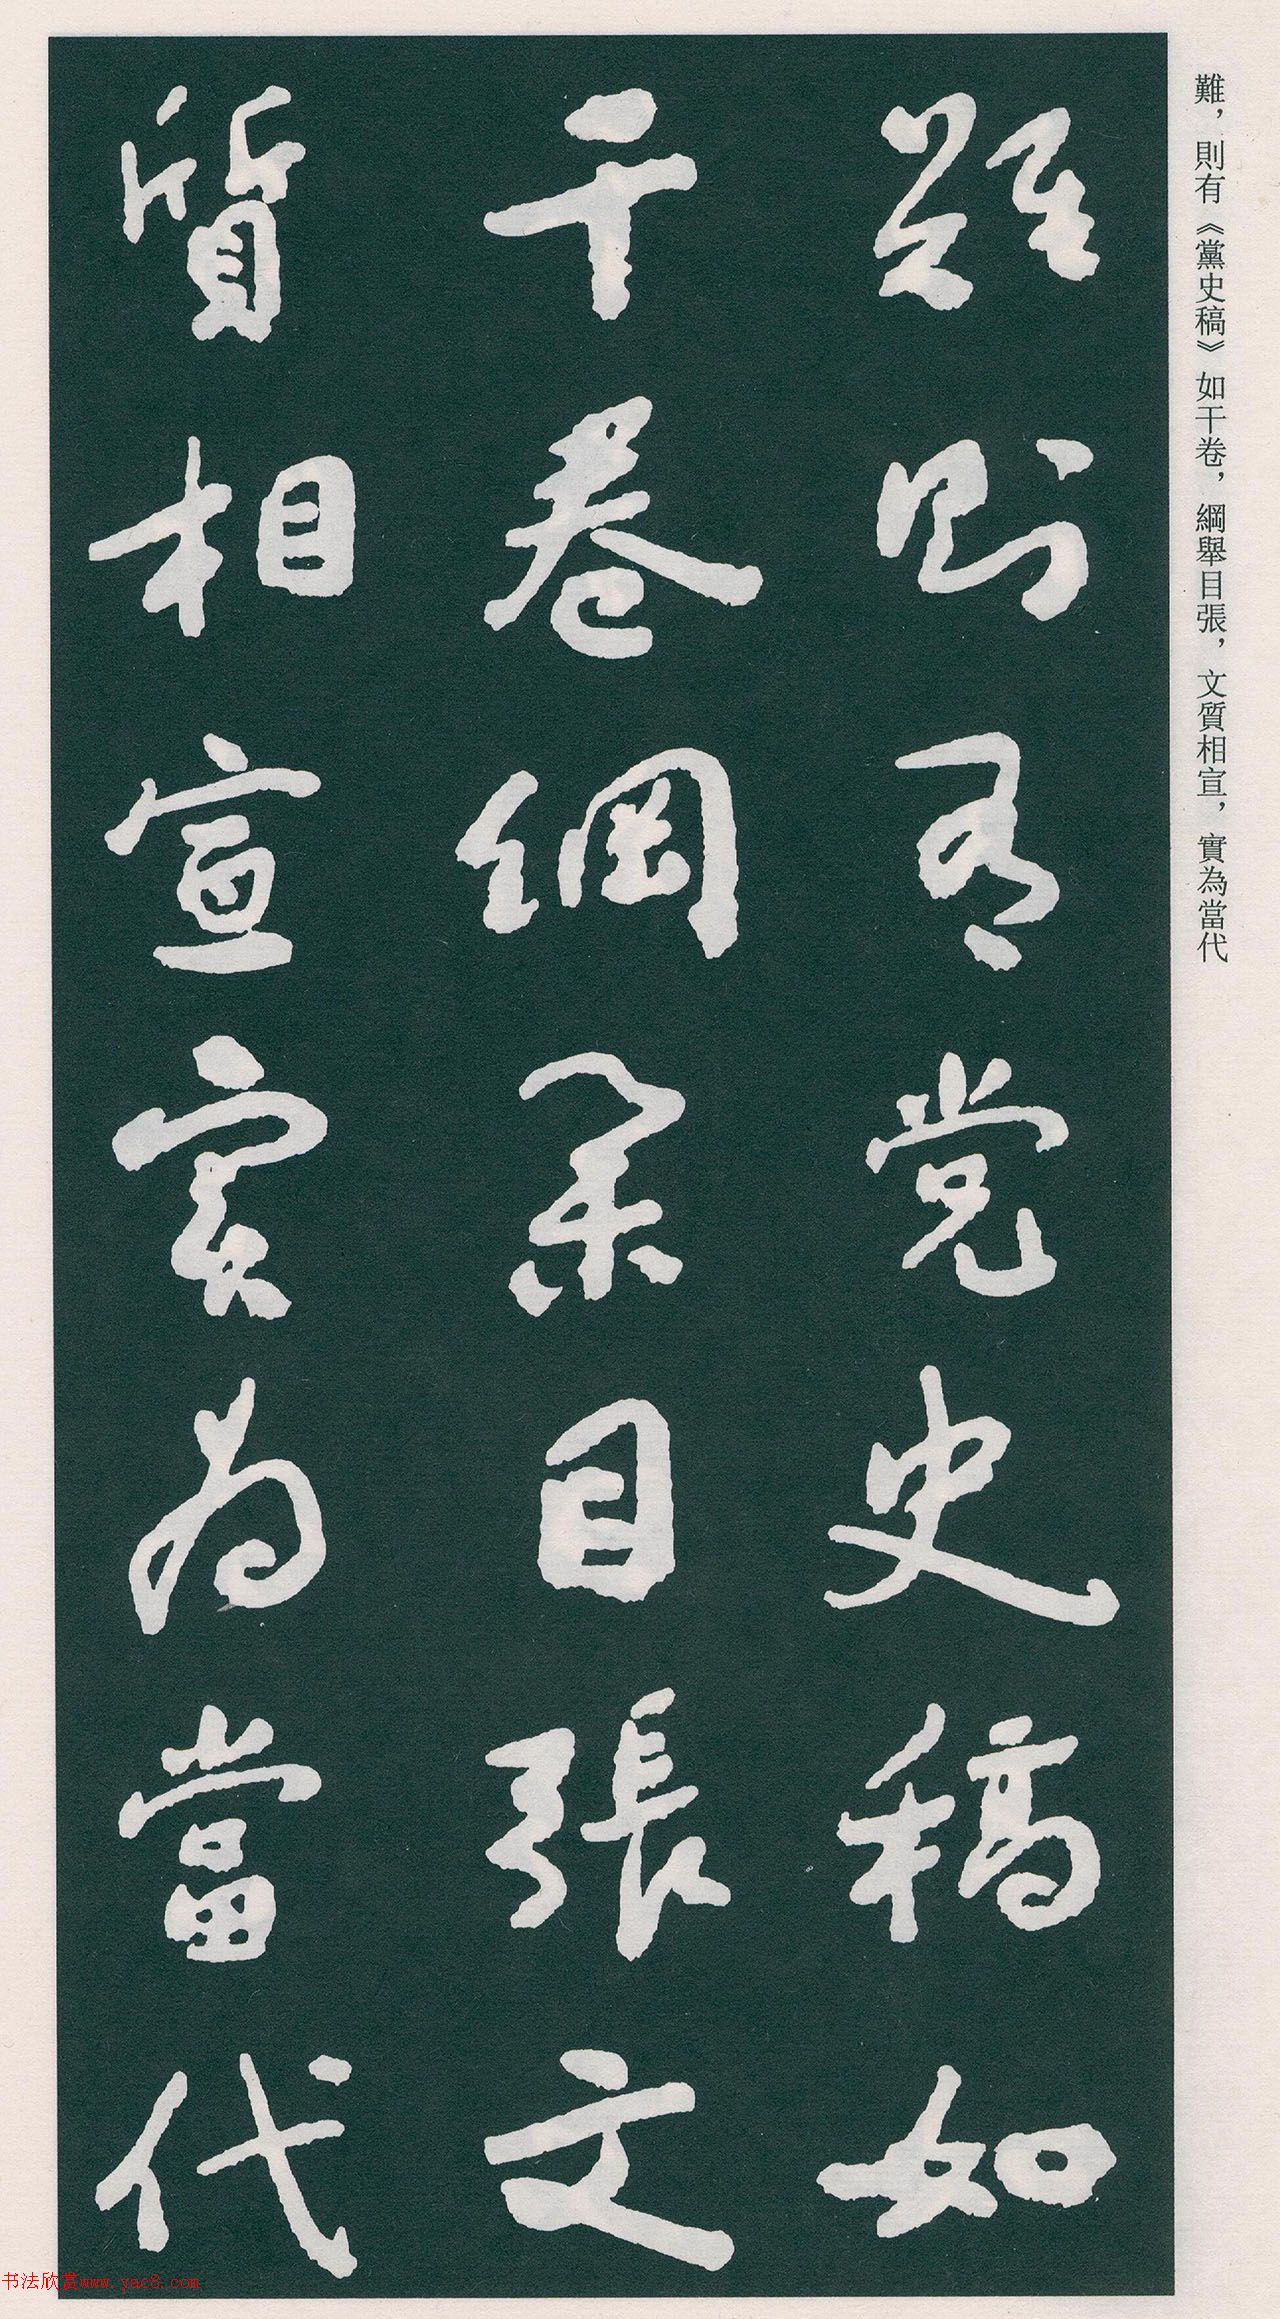 難，則有《黨史稿》如干卷，綱舉目張，文質相宣，實為當代
難則有党史稿如
干卷綱舉目張文
質相宣实為當代
书法欣赏www.yac8.com